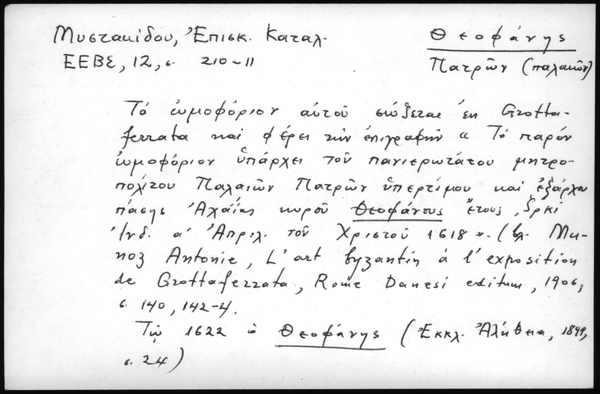 Μυστακίδου, Ἐπισκ. Καταλ.
ΕΕΒΣ, 12, σ. 210-11
Θεοφάνης
Πατρῶν (παλαιῶν)
Τό ὠμοφόριον αὐτοῦ σώζεται ἐν Grotta-
ferrata καί φέρει τήν ἐπιγραφήν « Τό παρόν
ὠμοφόριον ὑπάρχει τοῦ πανιερωτάτου μητρο-
πολίτου Παλαιῶν Πατρῶν ὑπερτίμου καί ἐξάρχου
πάσης Ἀχαΐας κυροῦ Θεοφάνους ἔτους ͵ζρκϛ
Ἰνδ. α' Ἀπριλ. τοῦ Χριστοῦ 1618 ». (βλ. Mu-
noz Antonie, L'art byzantin á l'exposition
de Grottaferrata, Rome Danesi editum, 1906,
σ. 140, 142-4.
Τῷ 1622 ὁ Θεοφάνης (Ἐκκλ. Ἀλήθεια, 1899,
σ. 24)